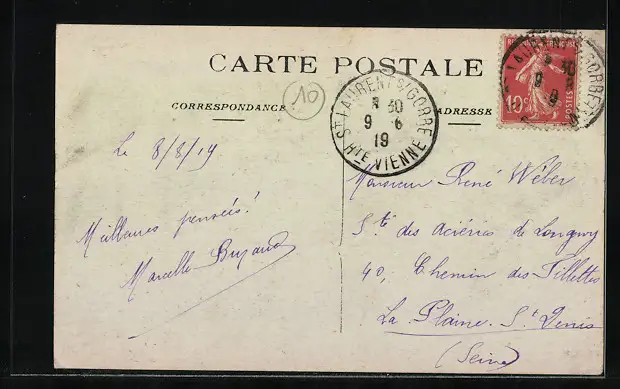 CARTE POSTALE
CORRESPONDANCE
ADRESSE
10
ST LAURENT S/GORRE
30
9 6
19
HTE VIENNE
LAURENT S/GORRE
30
9
10c
POSTES
Le 8/8/19
Meilleures pensées!
Marcelle
Monsieur René Wéber
Sté des aciéries de Longwy
40, Chemin des Fillettes
La Plaine. St Denis
(Seine)